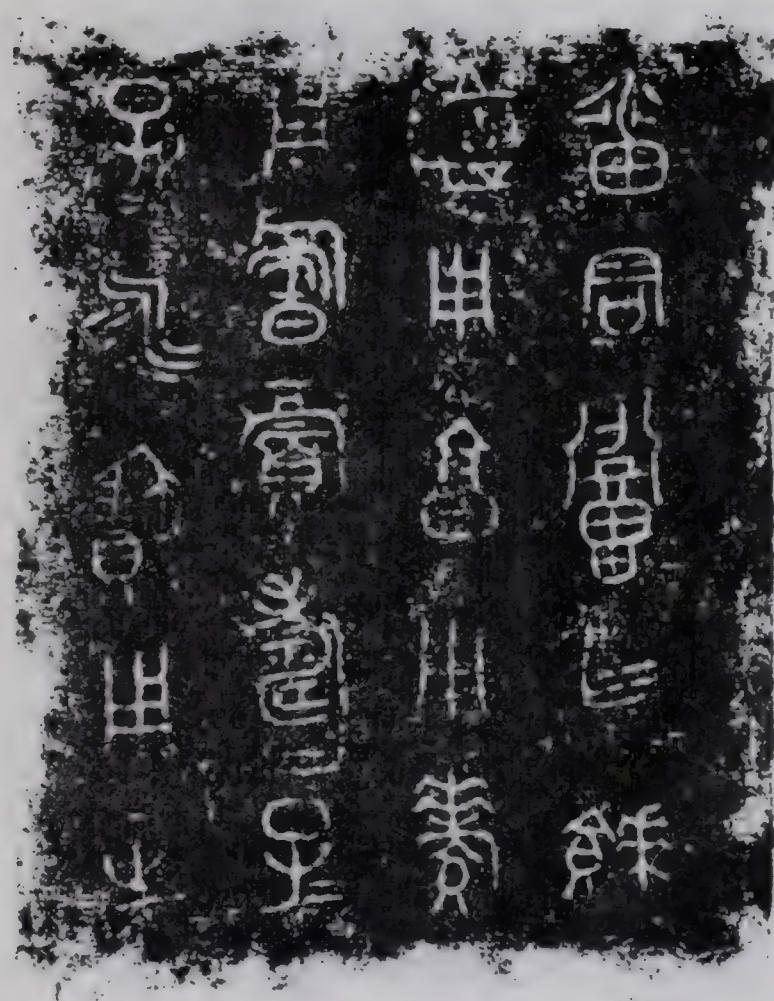 番君召乍餗
簠用享用孝
用祈眉壽子=
孫=永寶用之